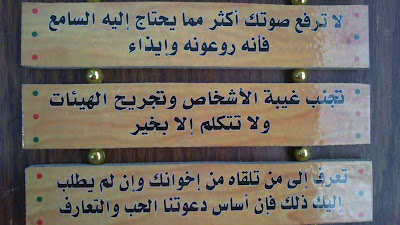 لا ترفع صوتك أكثر مما يحتاج إليه السامع
فأنه روعونه وإيذاء
تجنب غيبة الأشخاص وتجريح الهيئات
ولا تتكلم إلا بخير
تعرف إلى من تلقاه من إخوانك وإن لم يطلب
إليك ذلك فإن أساس دعوتنا الحب والتعارف